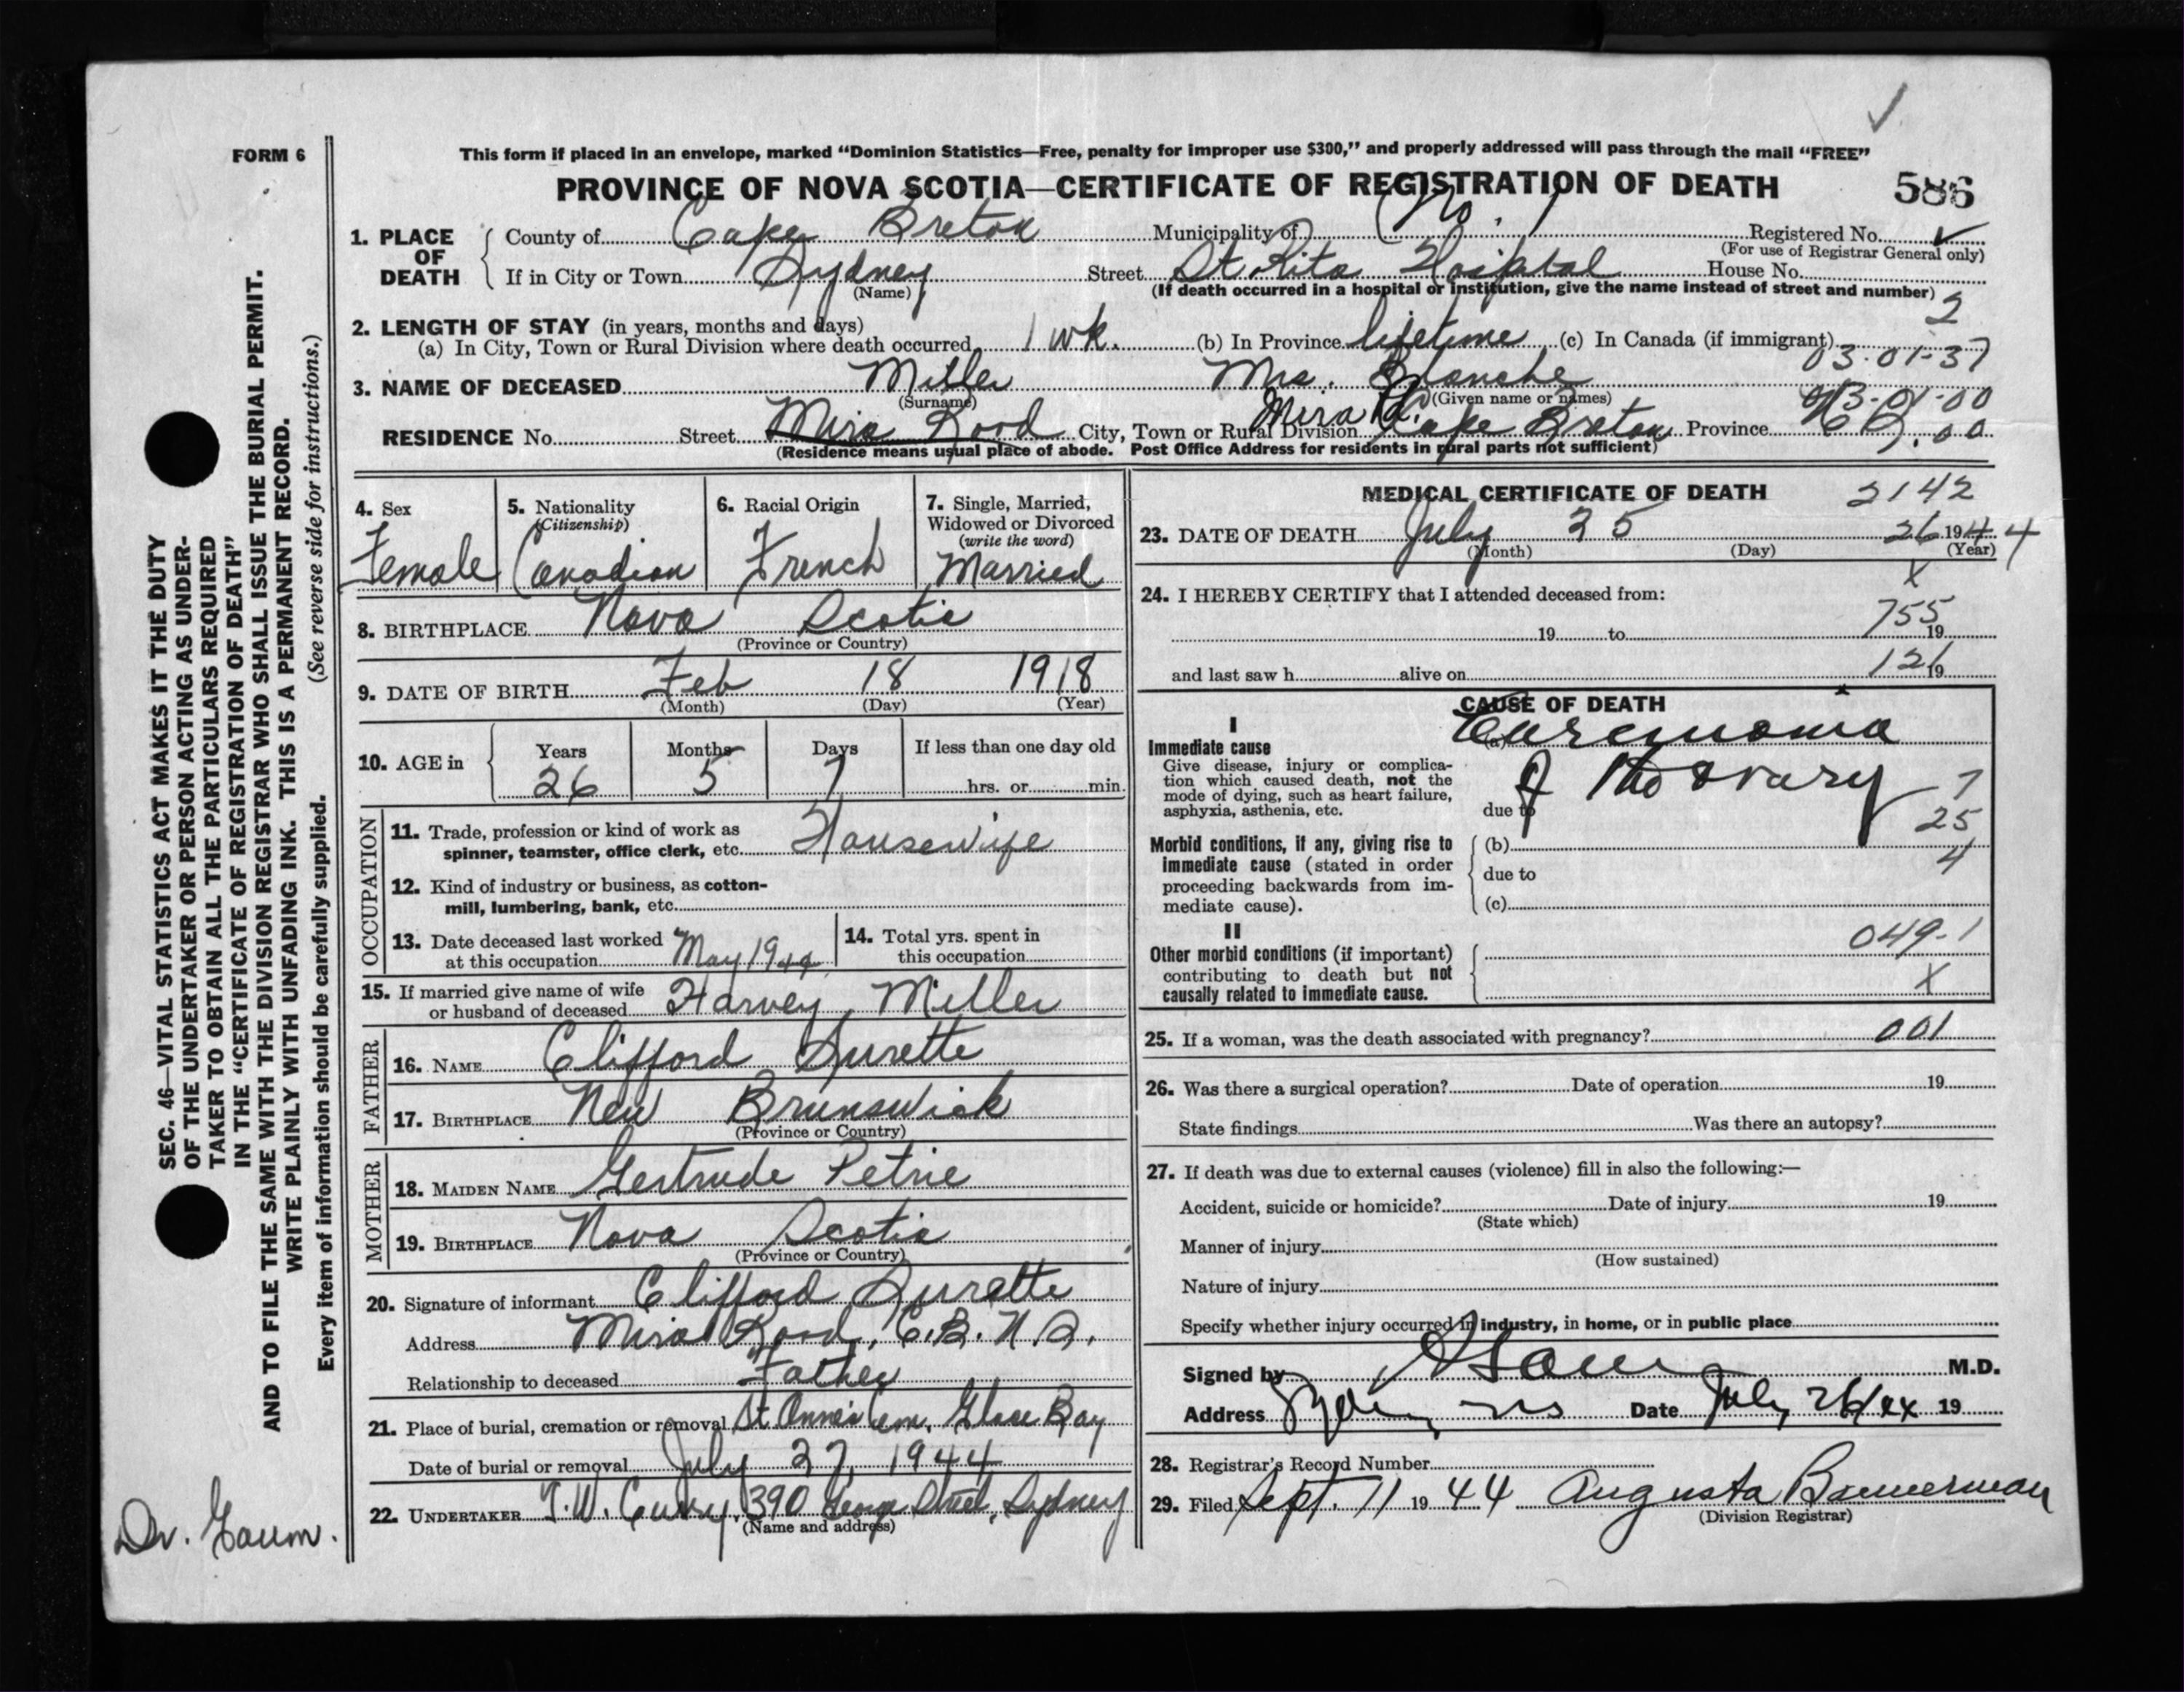 FORM 6
This form if placed in an envelope, marked “Dominion Statistics—Free, penalty for improper use $300,” and properly addressed will pass through the mail “FREE”
PROVINCE OF NOVA SCOTIA—CERTIFICATE OF REGISTRATION OF DEATH 586
1. PLACE OF DEATH { County of Cape Breton Municipality of No. 1 Registered No. ✓
(For use of Registrar General only)
If in City or Town Sydney Street St Rita Hospital House No.
(Name) (If death occurred in a hospital or institution, give the name instead of street and number) 2
2. LENGTH OF STAY (in years, months and days)
(a) In City, Town or Rural Division where death occurred 1 wk. (b) In Province lifetime (c) In Canada (if immigrant) 03-01-37
3. NAME OF DECEASED Miller Mrs. Blanche
(Surname) (Given name or names) 03-01-00
RESIDENCE No. Street Mira Road City, Town or Rural Division Mira Rd. Cape Breton Province .00
(Residence means usual place of abode. Post Office Address for residents in rural parts not sufficient)
4. Sex Female
5. Nationality (Citizenship) Canadian
6. Racial Origin French
7. Single, Married, Widowed or Divorced (write the word) Married
8. BIRTHPLACE Nova Scotia
(Province or Country)
9. DATE OF BIRTH Feb 18 1918
(Month) (Day) (Year)
10. AGE in { Years 26 Months 5 Days 7 If less than one day old
hrs. or min.
OCCUPATION
11. Trade, profession or kind of work as
spinner, teamster, office clerk, etc. Housewife
12. Kind of industry or business, as cotton-
mill, lumbering, bank, etc.
13. Date deceased last worked
at this occupation May 1944
14. Total yrs. spent in
this occupation
15. If married give name of wife
or husband of deceased Harvey Miller
FATHER
16. NAME Clifford Durette
17. BIRTHPLACE New Brunswick
(Province or Country)
MOTHER
18. MAIDEN NAME Gertrude Petrie
19. BIRTHPLACE Nova Scotia
(Province or Country)
20. Signature of informant Clifford Durette
Address Mira Road, C.B. N.S.
Relationship to deceased Father
21. Place of burial, cremation or removal St Anne's Cem. Glace Bay
Date of burial or removal July 27, 1944
22. UNDERTAKER T.W. Curry, 390 George Street, Sydney
(Name and address)
MEDICAL CERTIFICATE OF DEATH 2142
23. DATE OF DEATH July 25 26 1944
(Month) (Day) (Year)
x
24. I HEREBY CERTIFY that I attended deceased from:
19 to 755 19
and last saw h alive on 126 19
CAUSE OF DEATH
I
Immediate cause
Give disease, injury or complica-
tion which caused death, not the
mode of dying, such as heart failure,
asphyxia, asthenia, etc.
(a) Carcinoma
due to of the ovary
7
25
4
Morbid conditions, if any, giving rise to
immediate cause (stated in order
proceeding backwards from im-
mediate cause).
(b)
due to
(c)
II
Other morbid conditions (if important)
contributing to death but not
causally related to immediate cause.
049-1
X
25. If a woman, was the death associated with pregnancy? 001
26. Was there a surgical operation? Date of operation 19
State findings Was there an autopsy?
27. If death was due to external causes (violence) fill in also the following:—
Accident, suicide or homicide? Date of injury 19
(State which)
Manner of injury
(How sustained)
Nature of injury
Specify whether injury occurred in industry, in home, or in public place
Signed by M.D.
Address Sydney, NS Date July 26/44 19
28. Registrar's Record Number
29. Filed Sept. 11 1944 Augusta Bannerman
(Division Registrar)
SEC. 46—VITAL STATISTICS ACT MAKES IT THE DUTY
OF THE UNDERTAKER OR PERSON ACTING AS UNDER-
TAKER TO OBTAIN ALL THE PARTICULARS REQUIRED
IN THE “CERTIFICATE OF REGISTRATION OF DEATH”
AND TO FILE THE SAME WITH THE DIVISION REGISTRAR WHO SHALL ISSUE THE BURIAL PERMIT.
WRITE PLAINLY WITH UNFADING INK. THIS IS A PERMANENT RECORD.
Every item of information should be carefully supplied. (See reverse side for instructions.)
Dr. Gaum.